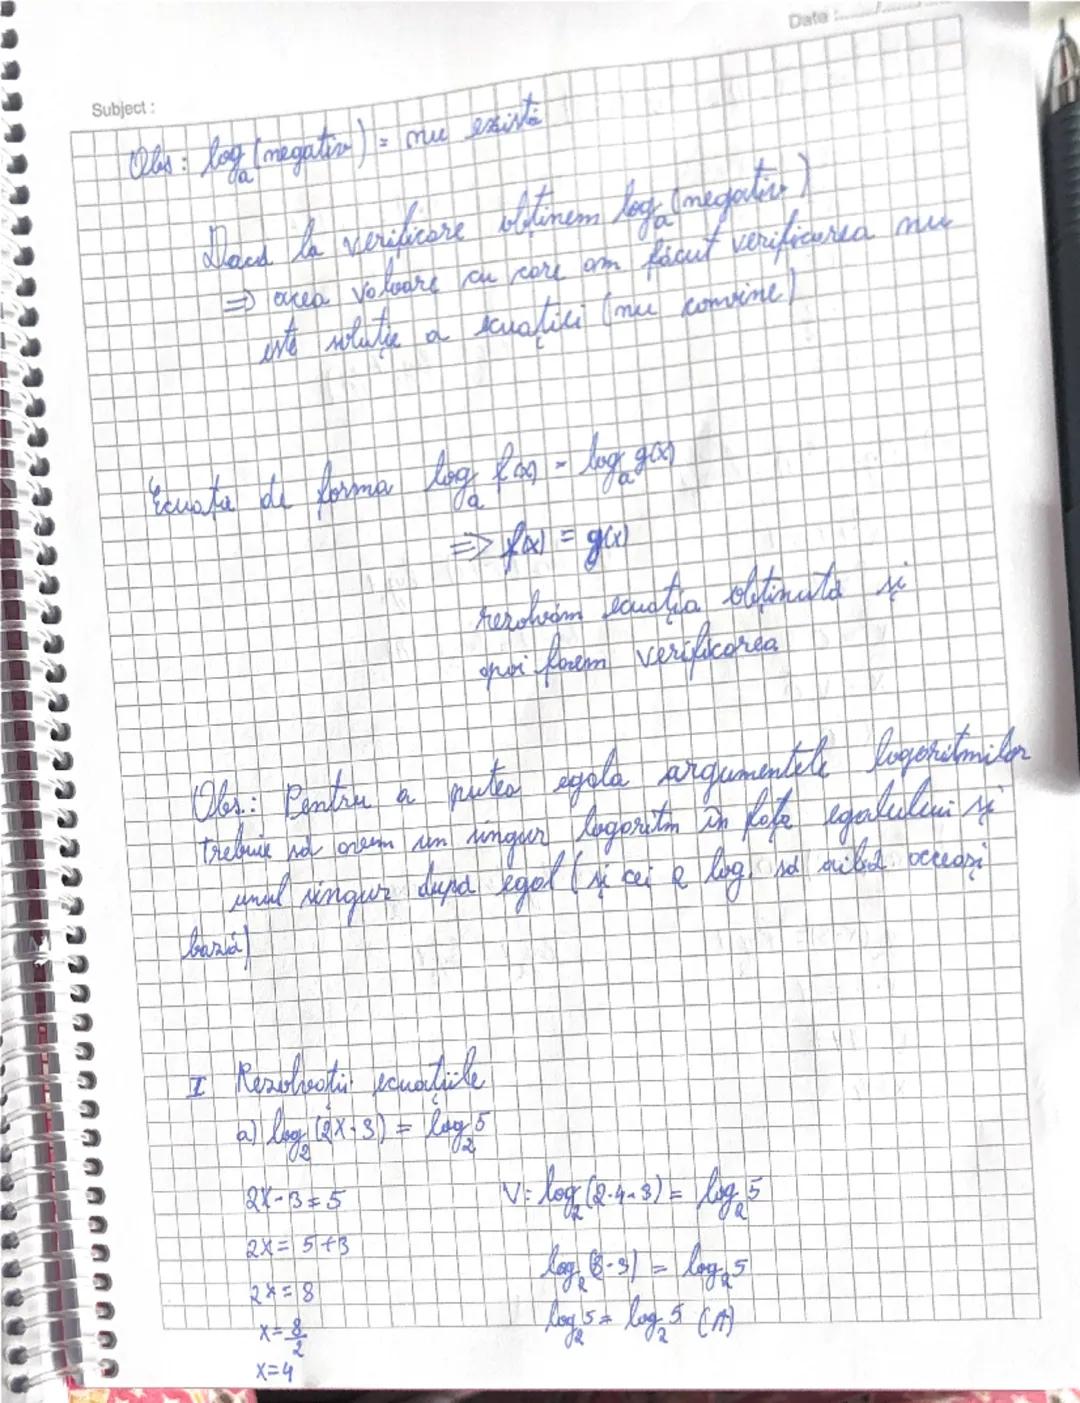 Date :
Subject :
Obs : log_a (negativ) = nu există
Dacă la verificare obținem log_a (negativ)
=> acea valoare cu care am făcut verificarea nu
este soluție a ecuației (nu convine)
Ecuație de forma log_a f(x) = log_a g(x)
=> f(x) = g(x)
rezolvăm ecuația obținută și
apoi facem verificarea
Obs.: Pentru a putea egala argumentele logaritmilor
trebuie să avem un singur logaritm în fața egalului și
unul singur după egal (și cei 2 log. să aibă aceeași
bază)
I Rezolvați ecuațiile
a) log_2 (2x-3) = log_2 5
2x-3=5
V: log_2 (2·4-3) = log_2 5
2x=5+3
log_2 (8-3) = log_2 5
2x=8
log_2 5 = log_2 5 (A)
x=8/2
x=4